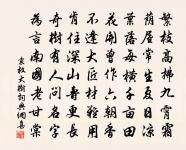 繁枝高拂九霄霜
蔭屋常生夏日涼
葉落每橫千畝田
花開曾作六朝香
不逢大匠材難用
肯住深山壽更長
奇樹有人問名字
為言南國老甘棠
袁枚大樹詩詞典網書